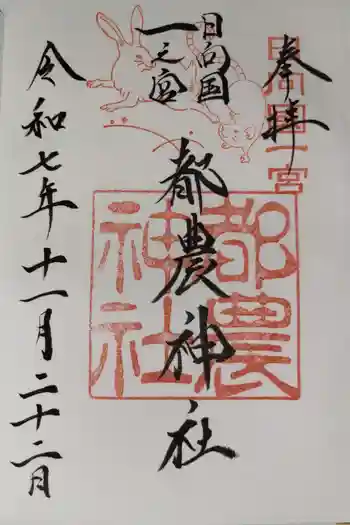 奉拝
日向国一宮
日向国
一之宮
都農神社
都農神社
令和七年十一月二十二日